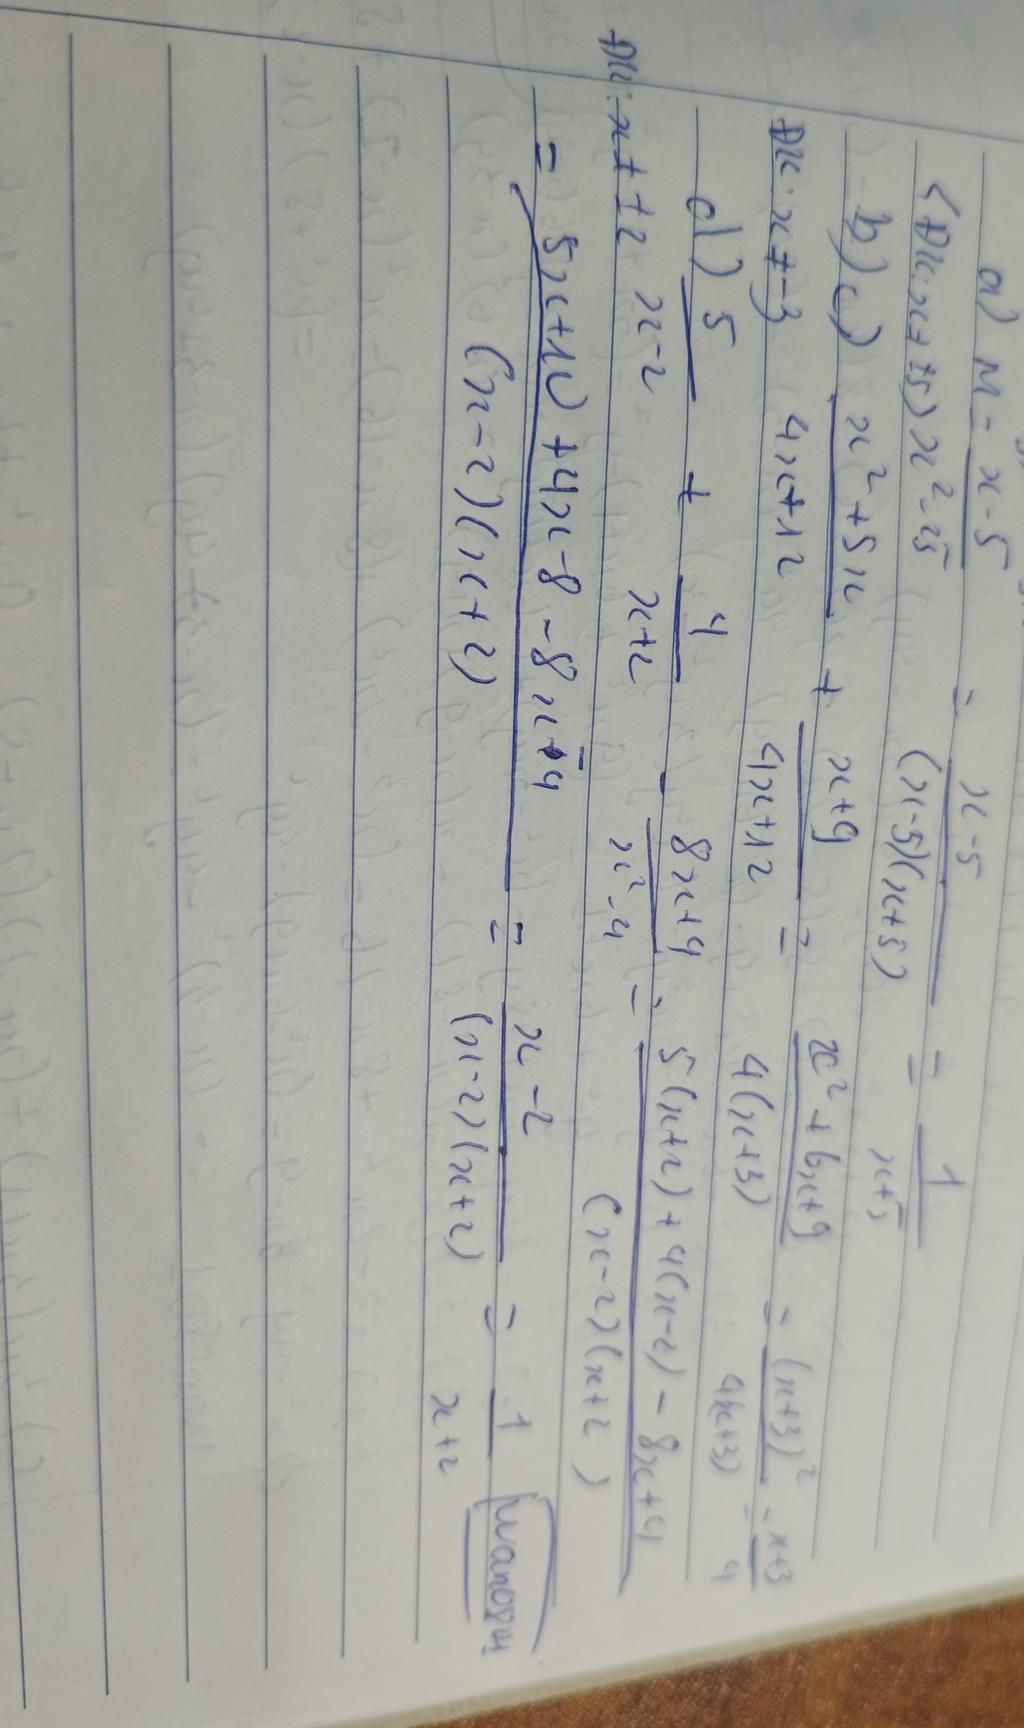 a) M = \frac{x-5}{x^2-25} = \frac{x-5}{(x-5)(x+5)} = \frac{1}{x+5}
<ĐK: x ≠ ±5>
b) c) \frac{x^2+5x}{4x+12} + \frac{x+9}{4x+12} = \frac{x^2+6x+9}{4(x+3)} = \frac{(x+3)^2}{4(x+3)} = \frac{x+3}{4}
ĐK: x ≠ -3
d) \frac{5}{x-2} + \frac{4}{x+2} - \frac{8x+4}{x^2-4} = \frac{5(x+2)+4(x-2)-8x+4}{(x-2)(x+2)}
ĐK: x ≠ ±2
= \frac{5x+10+4x-8-8x-4}{(x-2)(x+2)} = \frac{x-2}{(x-2)(x+2)} = \frac{1}{x+2}